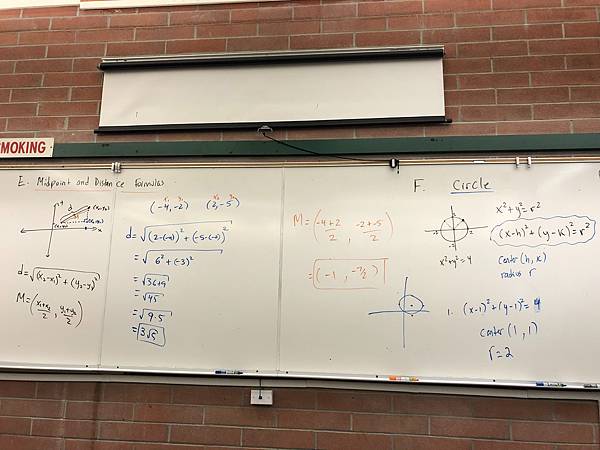 SMOKING
E. Midpoint and Distance Formulas
d
(x₂,y₂)
x
d=√(x₂-x₁)²+(y₂-y₁)²
M=(x₁+x₂/2, y₁+y₂/2)
x₁ y₁ x₂ y₂
(-4,-2) (2,-5)
d=√(2-(-4))²+(-5-(-2))²
=√6²+(-3)²
=√36+9
=√45
=√9·5
=3√5
M=(-4+2/2, -2+-5/2)
=(-1, -7/2)
F. Circle
x²+y²=r²
(x-h)²+(y-k)²=r²
x²+y²=4
center (h,k)
radius r
1. (x-1)²+(y-1)²=4
center (1,1)
r=2